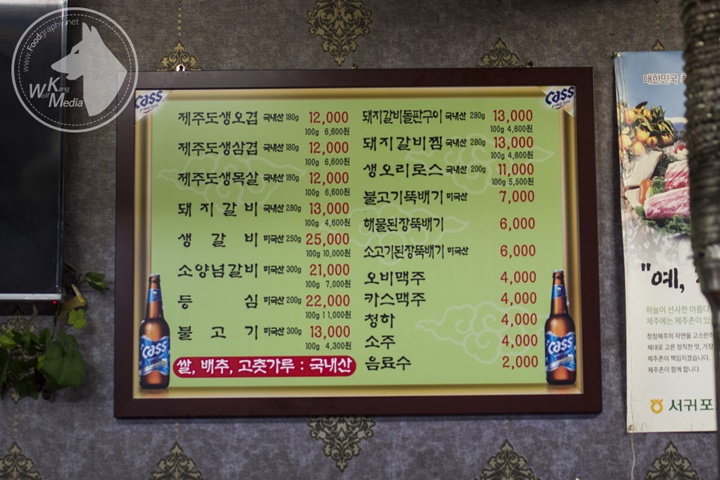 www.Foodgraphy.net
Wolf Kang
Media
cass
cass
제주도생오겹 국내산 180g 12,000
100g 6,600원
제주도생삼겹 국내산 180g 12,000
100g 6,600원
제주도생목살 국내산 180g 12,000
100g 6,600원
돼지갈비 국내산 280g 13,000
100g 4,600원
생갈비 미국산 250g 25,000
100g 10,000원
소양념갈비 미국산 300g 21,000
100g 7,000원
등심 미국산 200g 22,000
100g 11,000원
불고기 미국산 300g 13,000
100g 4,300원
쌀, 배추, 고춧가루 : 국내산
돼지갈비돌판구이 국내산 280g 13,000
100g 4,600원
돼지갈비찜 국내산 280g 13,000
100g 4,600원
생오리로스 국내산 200g 11,000
100g 5,500원
불고기뚝배기 미국산 7,000
해물된장뚝배기 6,000
소고기된장뚝배기 미국산 6,000
오비맥주 4,000
카스맥주 4,000
청하 4,000
소주 4,000
음료수 2,000
cass
cass
대한민국
"예,
하늘이 선사한 아름다
제주에는 제주촌이 있
청정제주의 자연을 고스란히
제대로 고른 정직한 맛,
제주촌이 책임지겠습니다.
제주촌이 함께 합니다.
서귀포